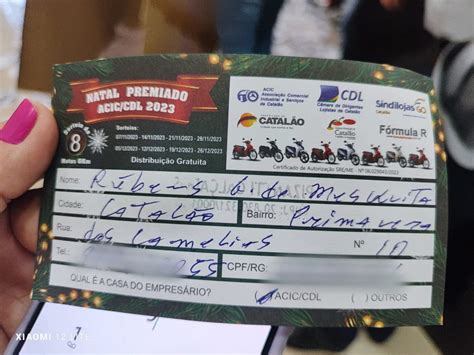 NATAL PREMIADO
ACIC/CDL 2023
Sorteio de
8
Motos 0Km
Sorteios:
07/11/2023 - 14/11/2023 - 21/11/2023 - 28/11/2023
05/12/2023 - 12/12/2023 - 19/12/2023 - 26/12/2023
Distribuição Gratuita
ACIC
Associação Comercial
Industrial e Serviços
de Catalão
CDL
Câmara de Dirigentes
Lojistas de Catalão
Sindilojas GO
CATALÃO
Catalão
Fórmula R
Certificado de Autorização SRE/ME - Nº 06.029043/2023
Nome: Rubens de Mesquita
Cidade: CATALÃO Bairro: Primavera
Rua: das Camelias Nº 10
Tel.: 55 CPF/RG:
QUAL É A CASA DO EMPRESÁRIO? (✓) ACIC/CDL ( ) OUTROS
XIAOMI 12